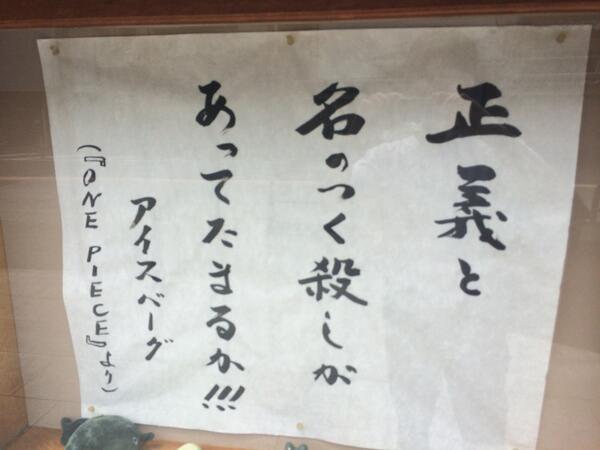 正義と
名のつく殺しが
あってたまるか!!!
アイスバーグ
(『ONE PIECE』より)